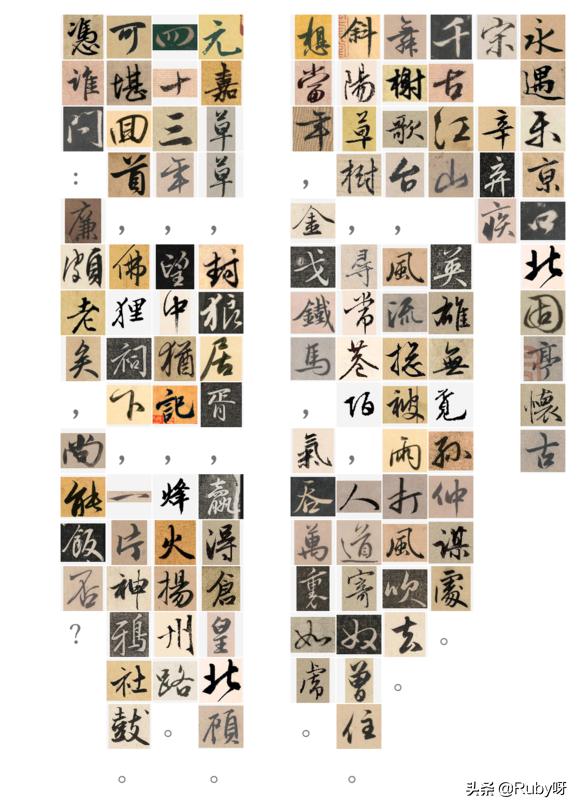 永遇乐京口北固亭懷古
宋辛弃疾
千古江山，英雄無覓孫仲謀處。
舞榭歌台，風流捴被雨打風吹去。
斜陽草樹，尋常巷陌，人道寄奴曾住。
想當年，金戈鐵馬，氣吞萬裏如虎。
元嘉草草，封狼居胥，贏得倉皇北顧。
四十三年，望中猶記，烽火揚州路。
可堪回首，佛狸祠下，一片神鴉社鼓。
憑誰問：廉頗老矣，尚能飯否？
头条 @Ruby呀